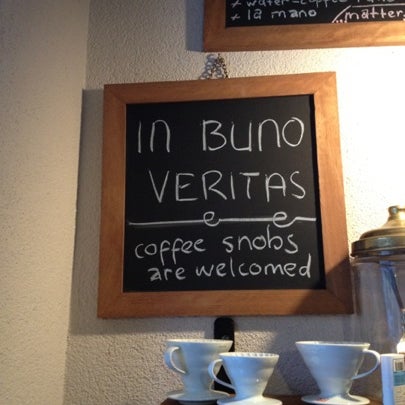 + water-coffee
+ la mano matter
In BUNO
VERITAS
coffee snobs
are welcomed